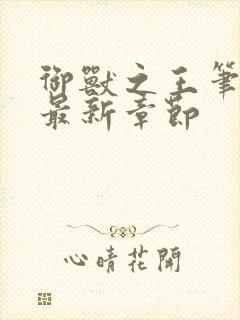 御獸之王筆
最新章節
心晴花開